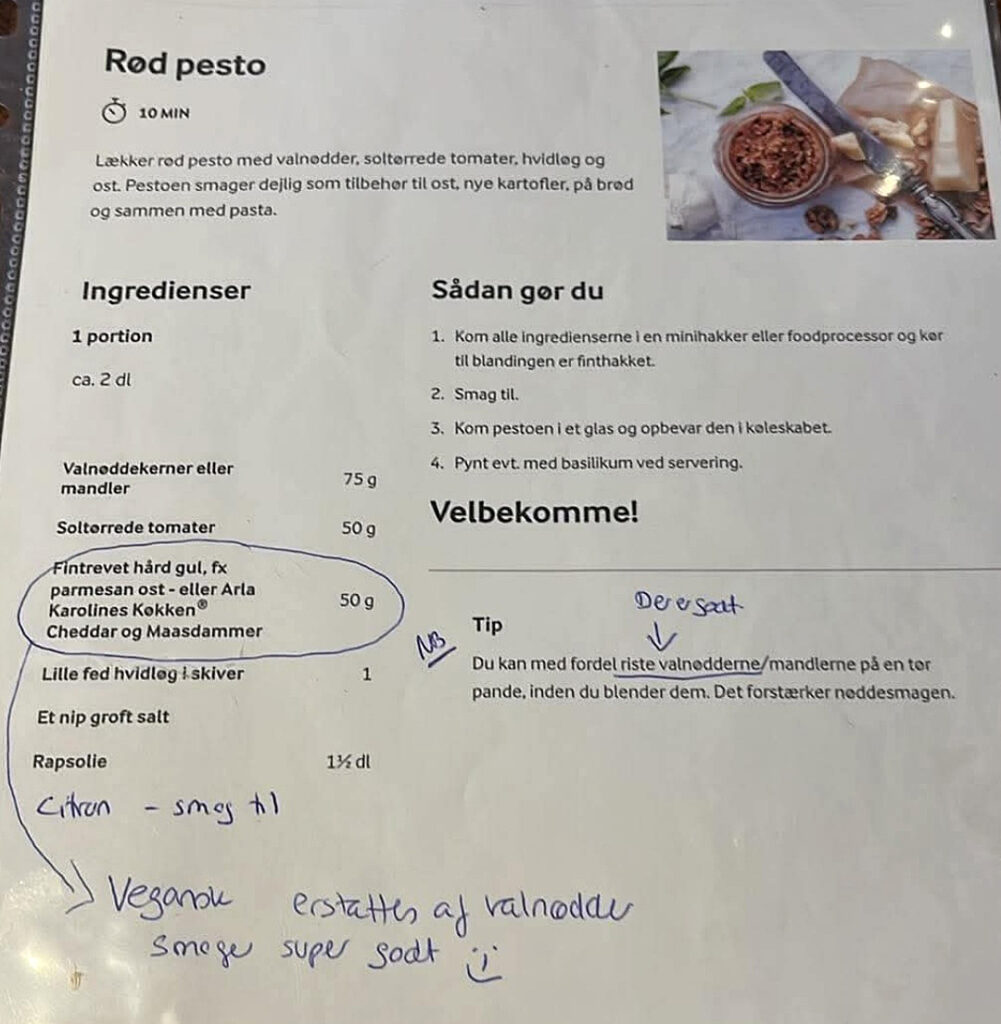 Rød pesto
10 MIN
Lækker rød pesto med valnødder, soltørrede tomater, hvidløg og
ost. Pestoen smager dejlig som tilbehør til ost, nye kartofler, på brød
og sammen med pasta.
Ingredienser
1 portion
ca. 2 dl
Valnøddekerner eller
mandler 75 g
Soltørrede tomater 50 g
Fintrevet hård gul, fx
parmesan ost - eller Arla
Karolines Køkken® 50 g
Cheddar og Maasdammer
Lille fed hvidløg i skiver 1
Et nip groft salt
Rapsolie 1½ dl
Citron - smag til
Vegansk erstattes af valnødder
Smager super godt
Sådan gør du
1. Kom alle ingredienserne i en minihakker eller foodprocessor og kør
til blandingen er finthakket.
2. Smag til.
3. Kom pestoen i et glas og opbevar den i køleskabet.
4. Pynt evt. med basilikum ved servering.
Velbekomme!
Der er godt
NB
Tip
Du kan med fordel riste valnødderne/mandlerne på en tør
pande, inden du blender dem. Det forstærker nøddesmagen.